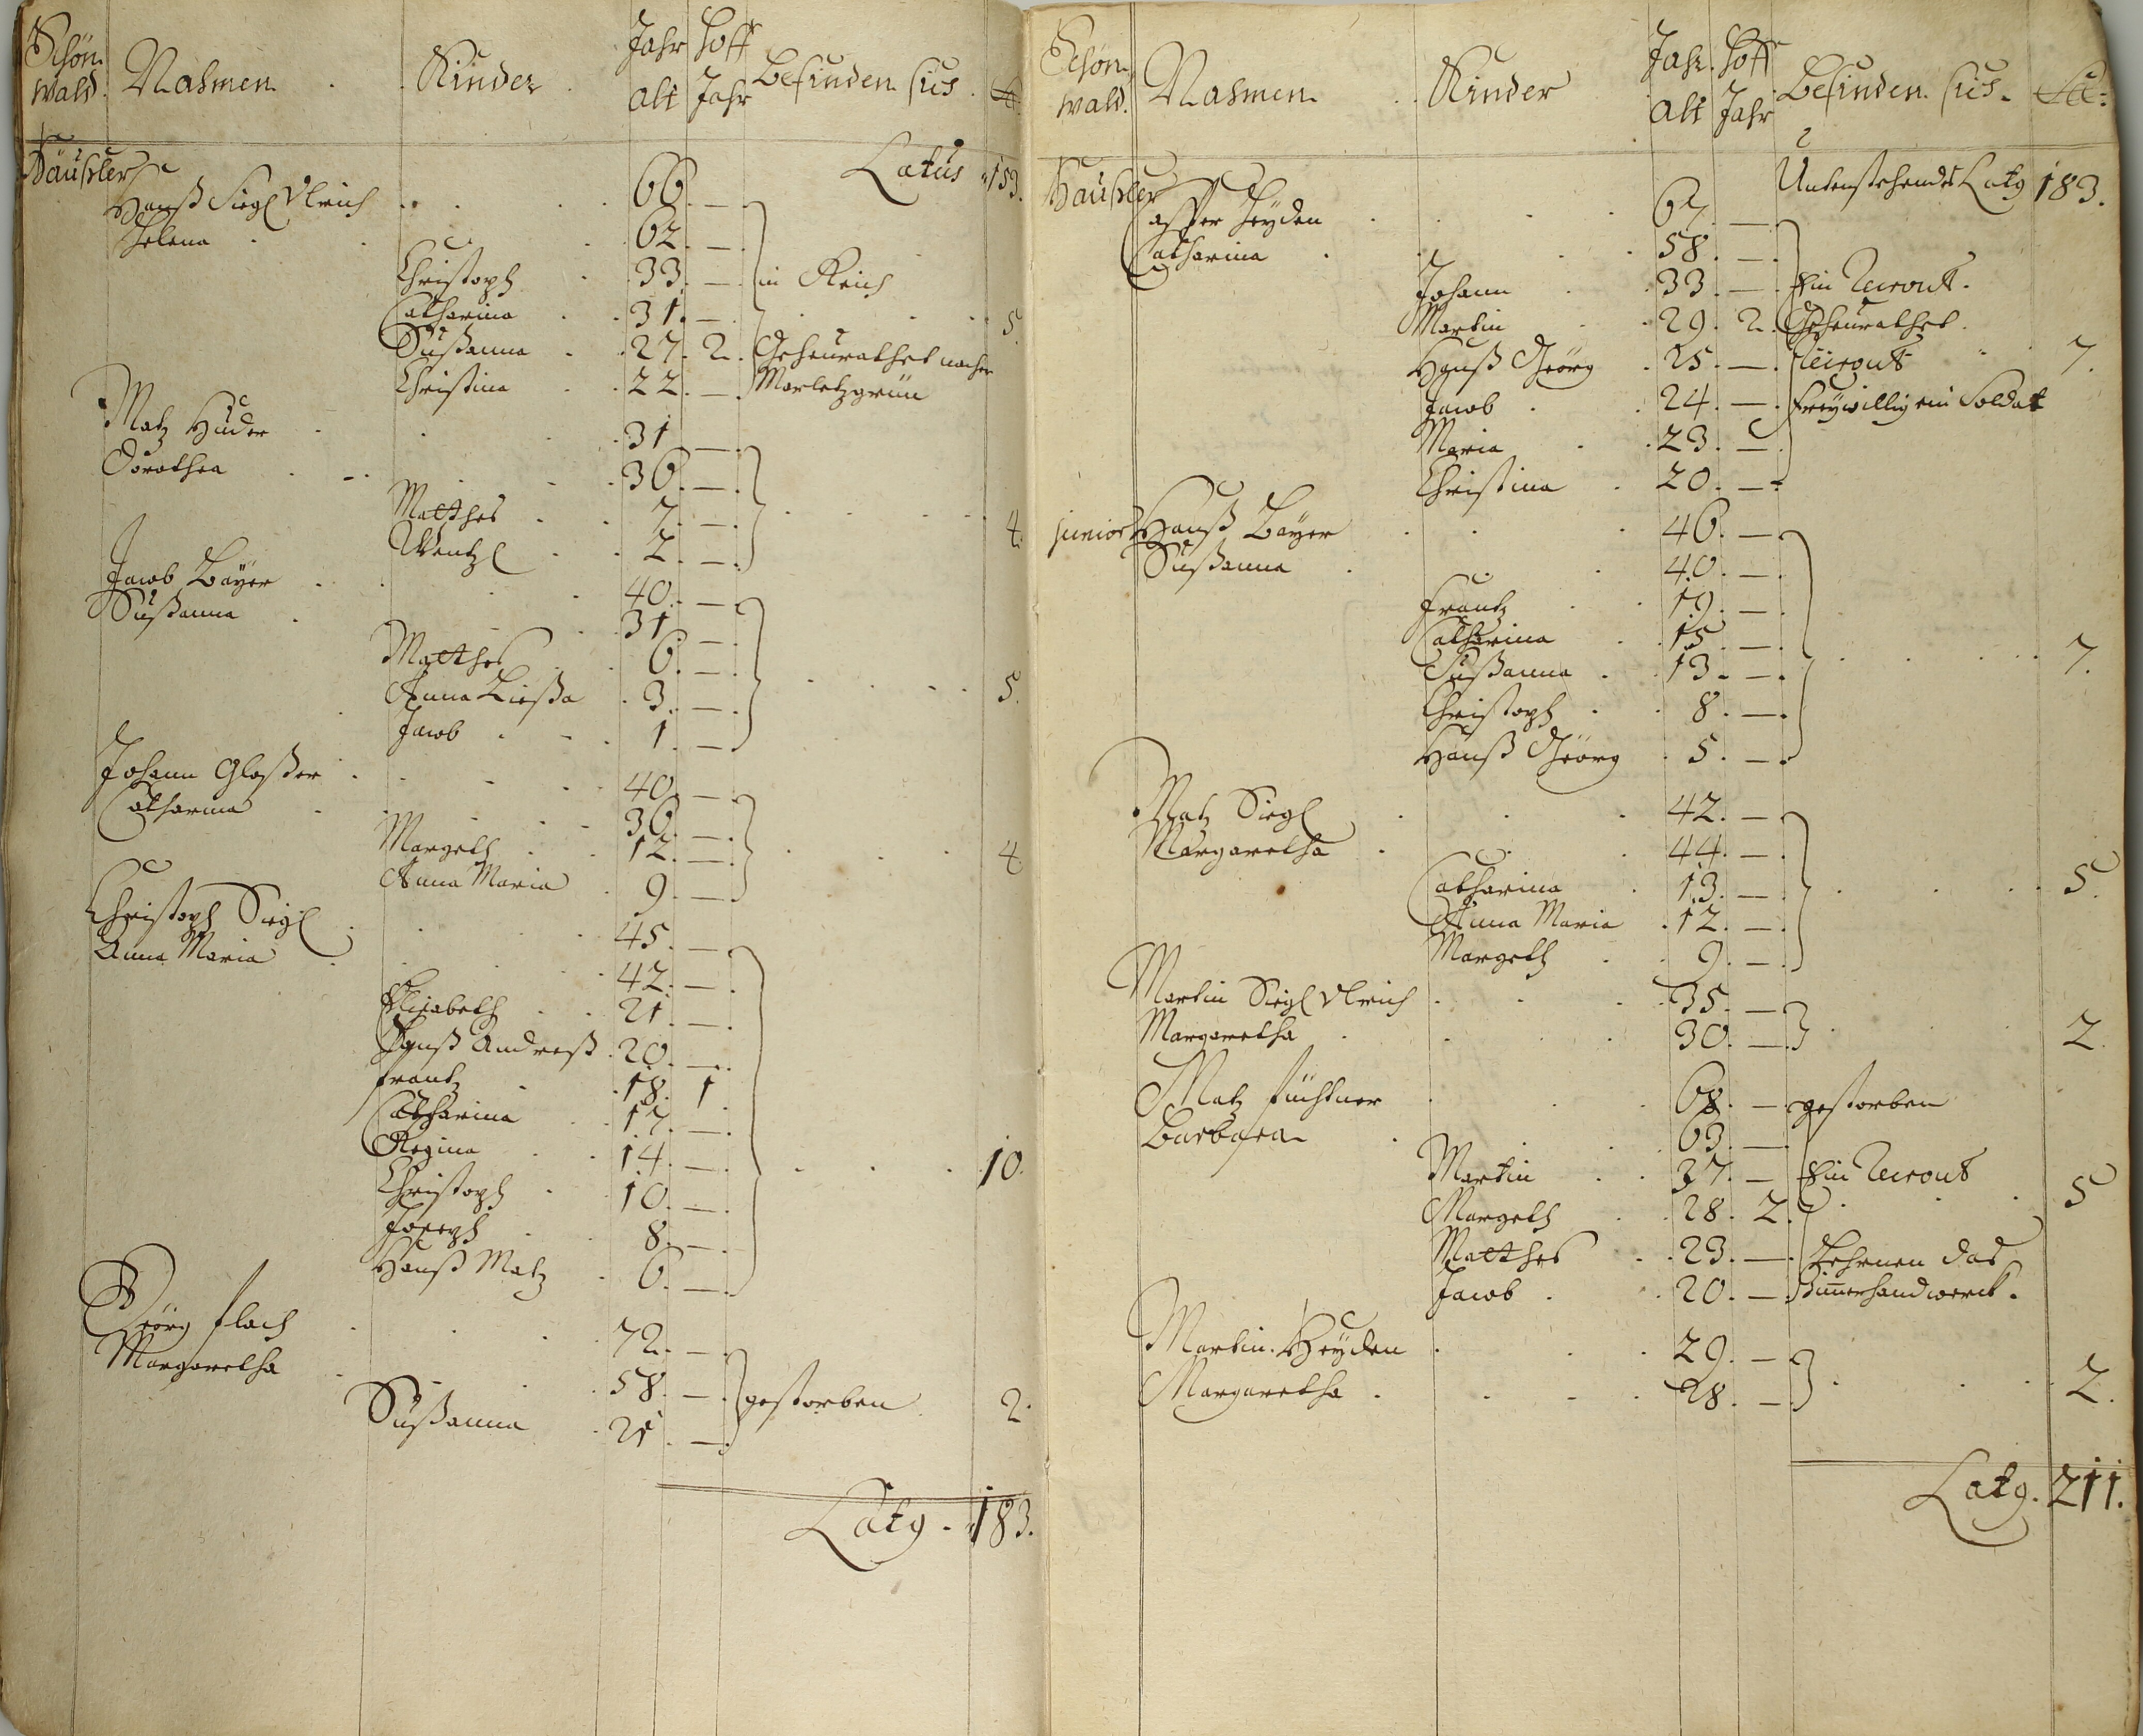 Schön-
wald. Nahmen. Kinder Jahr alt Hoff Jahr Befinden sich.
Häußler Latus 153.
Hanß Siegl Ulrich 66. —
Helena 62. —
Christoph 33. — in Reich
Catharina 31. — 5.
Sußanna 27. 2. Geheurathet nacher
Christina 22. — Marletzgrün
Matz Huder 31 —
Dorothea 30. —
Matthes 7. — 4.
Wentzl 2. —
Jacob Bayer 40. —
Sußanna 31 —
Matthes 6. —
Anna Ließa 3. — 5.
Jacob 1. —
Johann Glaßer 40. —
Catharina 36. —
Margeth 12. — 4.
Anna Maria 9. —
Christoph Siegl 45. —
Anna Maria 42. —
Elisabeth 21. —
Hanß Andreß 20. —
Frantz 18. 1
Catharina 17. —
Regina 14. — 10.
Christoph 10. —
Joseph 8. —
Hanß Matz 6. —
Geörg Flach 72. —
Margaretha 58. — gestorben 2.
Sußanna 21 —
Latg. 183.
Schön-
wald. Nahmen. Kinder Jahr alt Hoff Jahr Befinden sich.
Häußler Untenstehendes Latg 183.
Casper Heyden 67. —
Catharina 58. —
Johann 33. — Ein Recrout.
Martin 29. 2. Geheurathet.
Hanß Geörg 25. — Recrout 7.
Jacob 24. — Freywillig ein Soldat
Maria 23. —
Christina 20. —
junior Hanß Bayer 46. —
Sußanna 40. —
Frantz 19. —
Catharina 15. —
Sußanna 13. — 7.
Christoph 8. —
Hanß Geörg 5. —
Matz Siegl 42. —
Margaretha 44. —
Catharina 13. — 5.
Anna Maria 12. —
Margeth 9. —
Martin Siegl Ulrich 35. —
Margaretha 30. — 2.
Matz Füchtner 68. — gestorben
Barbara 63. —
Martin 37. — Ein Recrout 5
Margeth 28. 2.
Matthes 23. — Lehrnen das
Jacob 20. — Zim̄erhandwerck.
Martin Heyden 29. —
Margaretha 28. — 2.
Latg. 211.